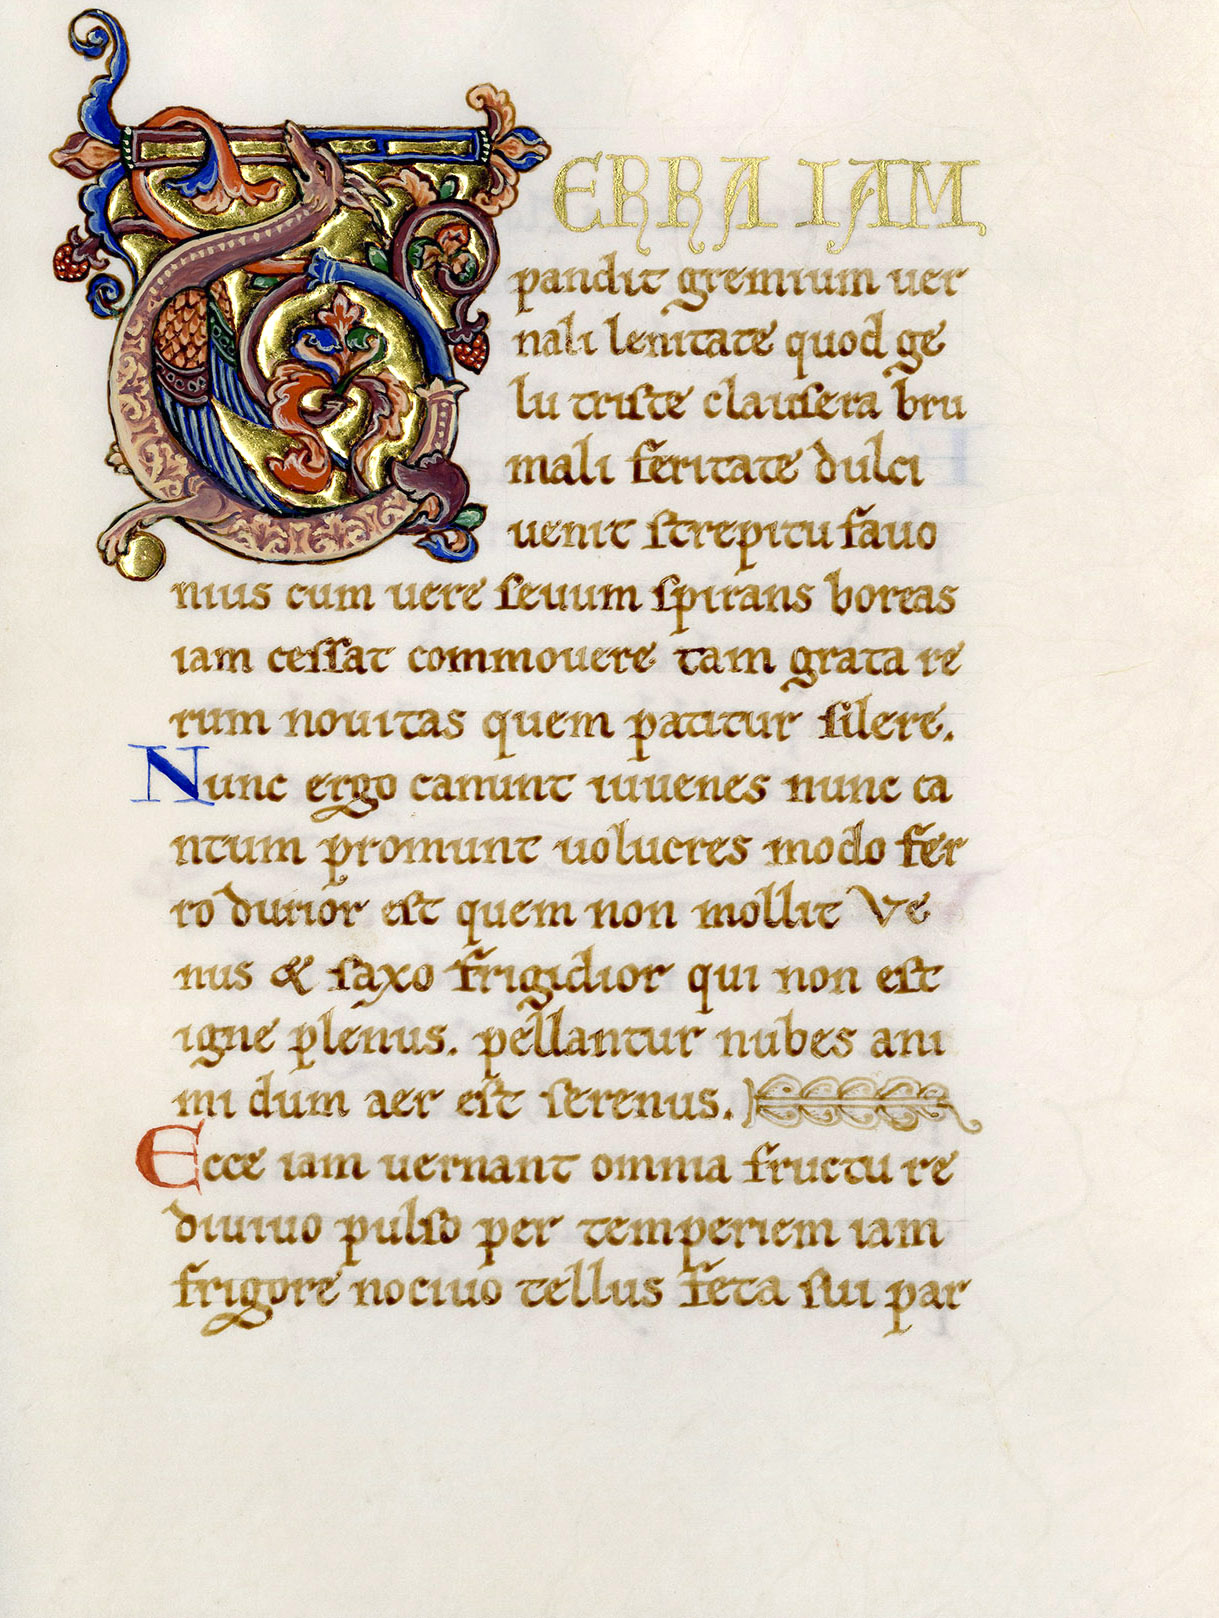 TERRA IAM
pandit gremium uer
nali lenitate quod ge
lu triste clausera bru
mali feritate dulci
uenit strepitu fauo
nius cum uere seuum spirans boreas
iam cessat commouere tam grata re
rum nouitas quem patitur silere.
Nunc ergo canunt iuuenes nunc ca
ntum promunt uolucres modo fer
ro durior est quem non mollit Ve
nus & saxo frigidior qui non est
igne plenus. pellantur nubes ani
mi dum aer est serenus.
Ecce iam uernant omnia fructu re
diuiuo pulso per temperiem iam
frigore nociuo tellus feta sui par